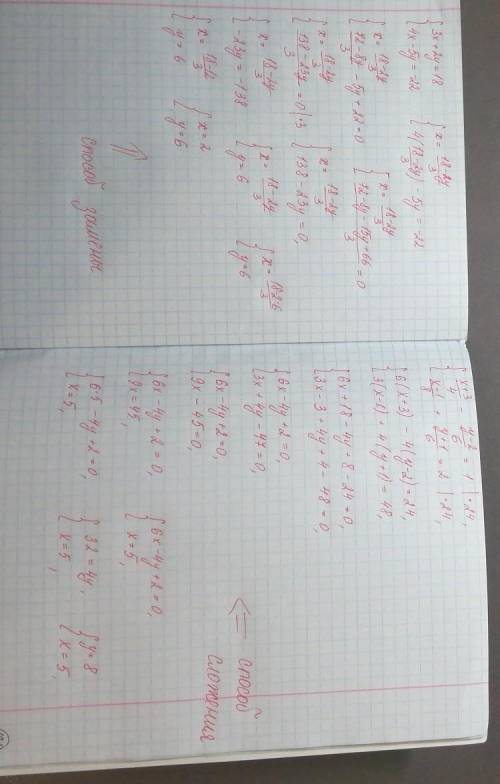 { 3x + 2y = 18
{ 4x - 5y = -22
{ x = (18-2y)/3
{ 4((18-2y)/3) - 5y = -22
{ x = (18-2y)/3
{ (72-8y)/3 - 5y + 22 = 0
{ x = (18-2y)/3
{ (72-8y-15y+66)/3 = 0
{ x = (18-2y)/3
{ (138-23y)/3 = 0 | ·3
{ x = (18-2y)/3
{ 138 - 23y = 0,
{ x = (18-2y)/3
{ -23y = -138
{ x = (18-2y)/3
{ y = 6
{ x = (18-2·6)/3
{ y = 6
{ y = 6
{ x = 2
{ y = 6
↑
способ замены
{ (x+3)/4 - (y-2)/6 = 1 | ·24,
{ (x-1)/8 + (y+1)/6 = 2 | ·24,
{ 6(x+3) - 4(y-2) = 24,
{ 3(x-1) + 4(y+1) = 48,
{ 6x + 18 - 4y + 8 - 24 = 0,
{ 3x - 3 + 4y + 4 - 48 = 0,
{ 6x - 4y + 2 = 0,
{ 3x + 4y - 47 = 0,
{ 6x - 4y + 2 = 0,
{ 9x - 45 = 0,
{ 6x - 4y + 2 = 0,
{ 9x = 45,
{ 6x - 4y + 2 = 0,
{ x = 5,
{ 6·5 - 4y + 2 = 0,
{ x = 5,
{ 32 = 4y,
{ x = 5,
{ y = 8
{ x = 5,
⇐ способ
сложения